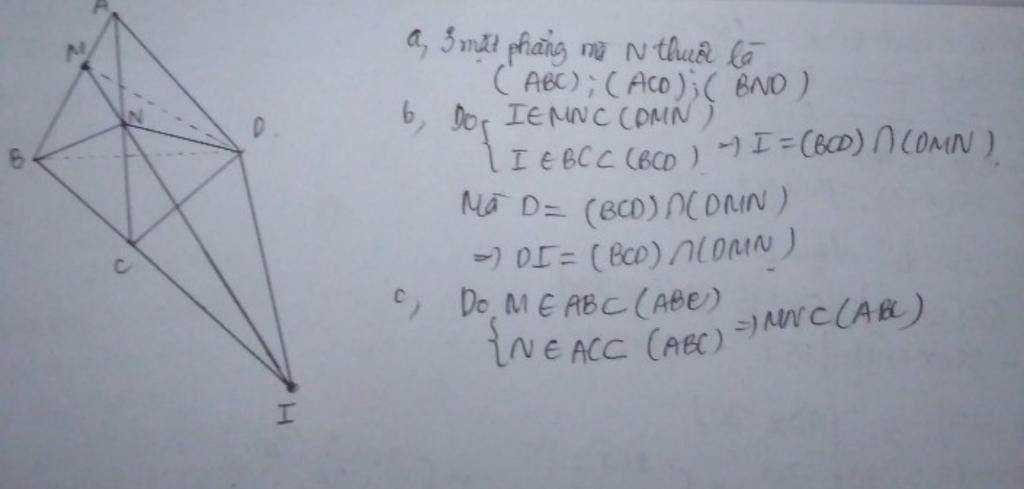 A
M
N
D
B
C
I
a, 3 mặt phẳng mà N thuộc là
(ABC); (ACD); (BND)
b, Do { I ∈ MN ⊂ (DMN)
I ∈ BC ⊂ (BCD) → I = (BCD) ∩ (DMN)
Mà D = (BCD) ∩ (DMN)
=> DI = (BCD) ∩ (DMN)
c, Do { M ∈ AB ⊂ (ABC)
N ∈ AC ⊂ (ABC) => MN ⊂ (ABC)